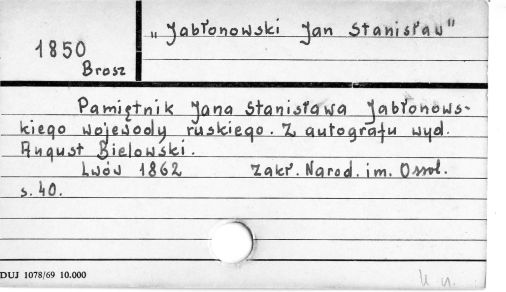 1850
Brosz
„Jabłonowski Jan Stanisław”
Pamiętnik Jana Stanisława Jabłonows-
kiego wojewody ruskiego. Z autografu wyd.
August Bielowski.
Lwów 1862 Zakł. Narod. im. Ossol.
s. 40.
DUJ 1078/69 10.000